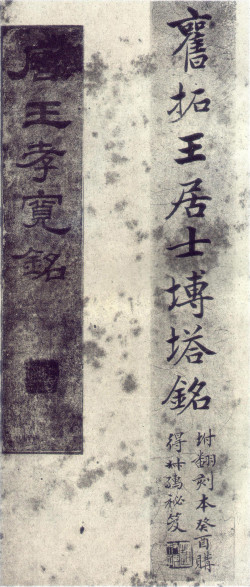 舊拓王居士塼塔銘
坿翻刻本癸酉購
得 祕笈
唐王孝寬銘